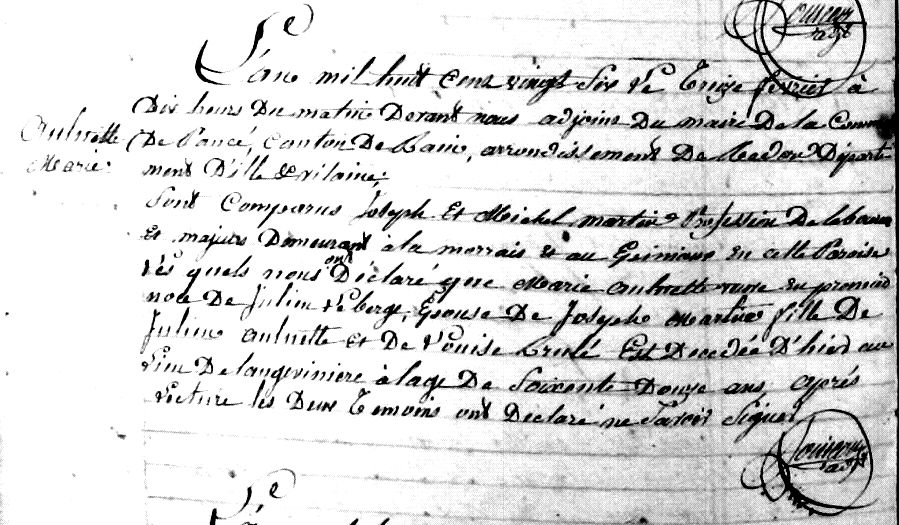 L'an mil huit cens vingt Six Le Treize fevrier à
Dix heurs Du matin Devant nous adjoint Du maire De la Commune
Aulnette
Marie
De Pancé, Canton De Bain, arrondissement De Redon Départe-
ment D'ille & vilaine;
Sont Comparus Joseph Et Michel martin Profession De laboureur
Et majurs Demeurant à la morrais Et au en cette Paroise
Les quels nous ont Déclaré que Marie aulnette veuve En premier
noce De Julien Leberge, Epouse De Joseph Martin fille De
Julien Aulnette et De Louise Brulé Est Decedée D'hier au
Lieu De langeviniere à lage De Soixente Douze ans apprés
Lecture les Deux Temoins ont Declaré ne Savoir Signer